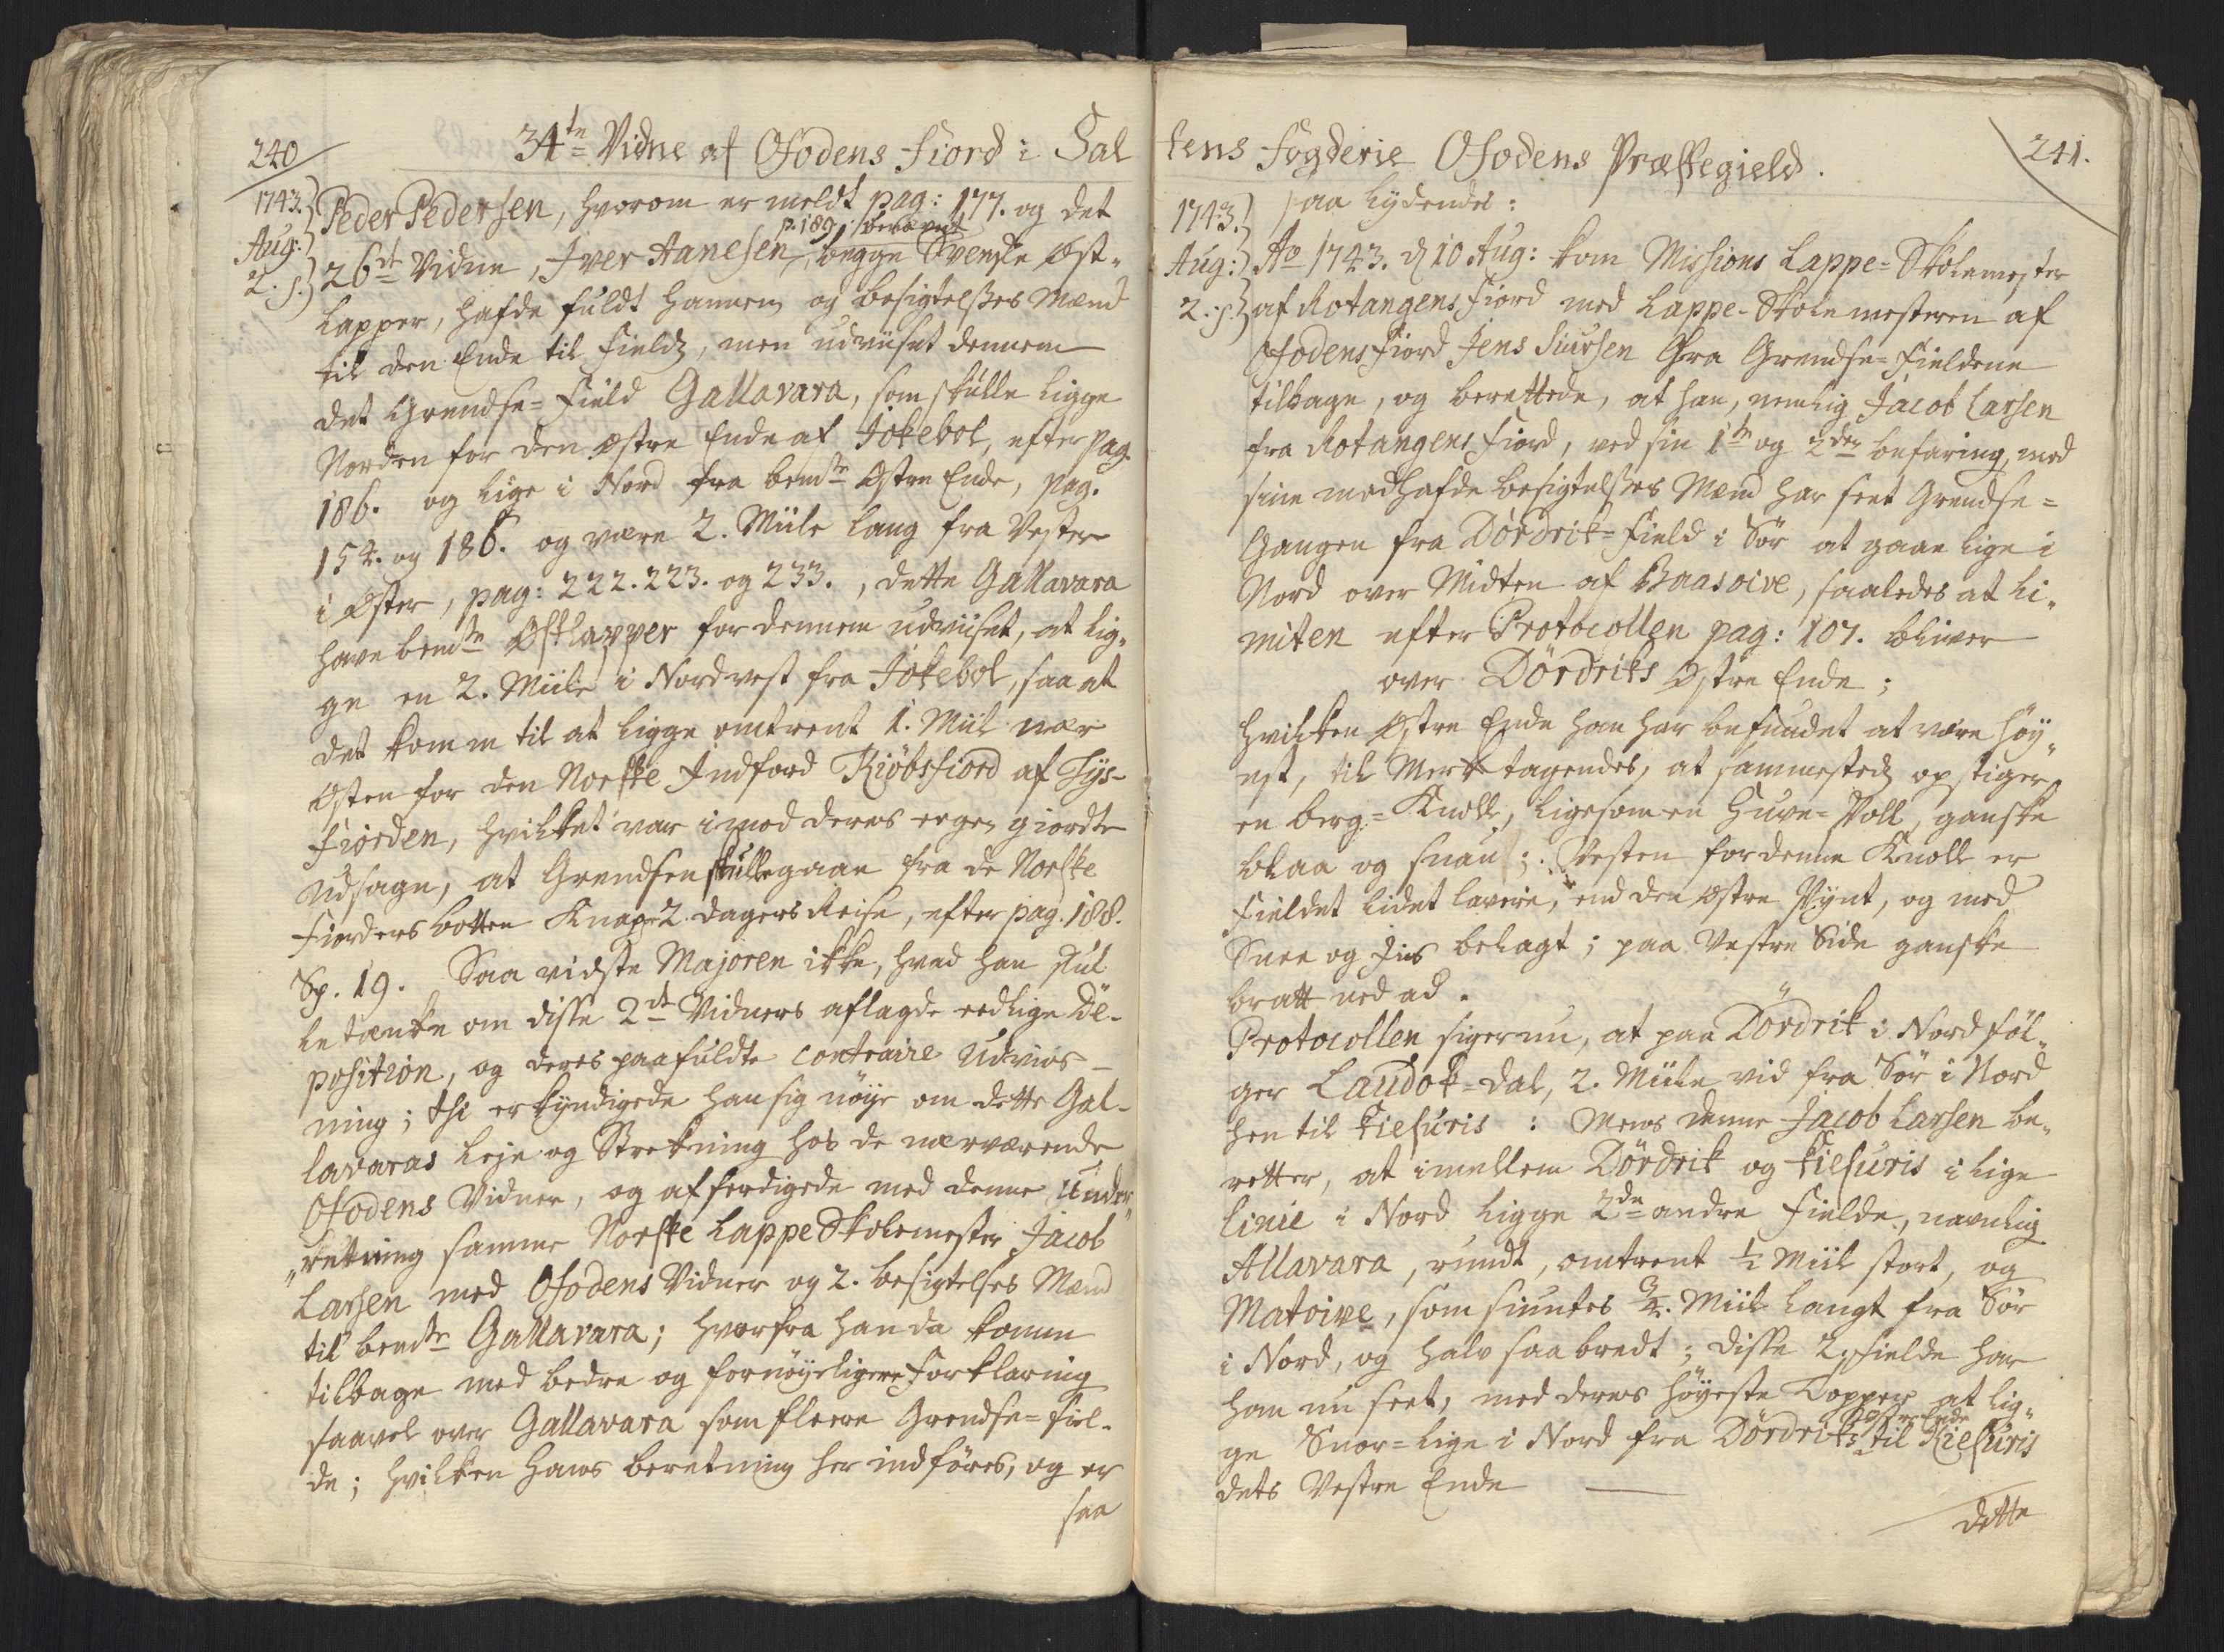 240
34te Vidne af Ofodens Fiord i Sal
1743.
Aug:
2. s.
Peder Pedersen, hvorom er meldt pag: 177. og det
p. 189. benævnt
26de Vidne, Iver Aanesen, begge Svenske Øst-
Lapper, hafde fuldt hannem og besigtelsses Mænd
til den Ende til Fields, men udviiset dennem
det Grendse-Field Gallavara, som skulle ligge
Norden for den østre Ende af Jokebol, efter pag
186. og lige i Nord fra bemte Østre Ende, pag.
154. og 186. og være 2. Miile lang fra Vester
i Øster, pag: 222. 223. og 233., dette Gallavara
have bemte Østlapper for dennem udviiset, at lig-
ge en 2. Miile i Nordvest fra Jokebol, saa at
det komm til at ligge omtrent 1. Miil nær
Østen for den Norske Indfiord Kiöbsfiord af Tys-
Fiorden, hvilket var imod deres egen giordte
Udsagn, at Grendsen skulle gaae fra de Norske
Fiorders botten Knap 2. dagers Reise, efter pag. 188.
Sp. 19. Saa vidste Majoren ikke, hvad han skul
le tænke om disse 2de Vidners aflagde eedlige De-
position, og deres paafuldte contraire Udviis-
ning; thi erkyndigede han sig nöye om dette Gal-
lavaras Leje og Strekning hos de nærværende
Ofodens Vidner, og afferdigede med denne Under-
retning samme Norske Lappe Skolemester Jacob
Larsen med Ofodens Vidner og 2. besigtelses Mænd
til bemte Gallavara; hvorfra han da komm
tilbage med bedre og fornöyeligere Forklaring
saavel over Gallavara som fleere Grendse-Fiel-
de; hvilken hans beretning her indföres, og er
saa
tens Fogderie Ofodens Præstegield.
241.
1743.
Aug:
2. s.
saa lydendes:
Ao 1743. d 10 Aug: kom Missions Lappe-Skolemester
af Rotangens Fiord med Lappe-Skolemesteren af
Ofodens Fiord Jens Siursen fra Grendse-Fieldene
tilbage, og berettede, at han, nemlig Jacob Larsen
fra Rotangens Fiord, ved sin 1te og 2den befaring, med
sine medhafde besigtelsses Mænd har seet Grendse-
Gangen fra Dördrik-Field i Sör at gaae lige i
Nord over Midten af Baasoive, saaledes at Li-
miten efter Protocollen pag: 107. bliver
over Dördriks Østre Ende;
hvilken Østre Ende han har befundet at være höy-
est, til Merke tagendes, at sammesteds opstiger
en berg-Knolk, ligesom en Huve-Poll, ganske
blaa og snau;. Vesten for denne Knolk er
Fieldet lidet lavere, end den østre Pynt, og med
Snee og Iis belagt; paa Vestre Side ganske
bratt ned ad.
Protocollen siger nu, at paa Dördrik i Nord föl-
ger Laudok-dal, 2. Miile vid fra Sör i Nord
hen til Kielsuris: Mens denne Jacob Larsen be-
retter, at imellem Dördrik og Kielsuris i lige
Linie i Nord ligge 2de andre Fielde, navnlig
Allavara, rundt, omtrent ½ Miil stort, og
Matoive, som siuntes ¾. Miil langt fra Sör
i Nord, og halv saa bredt; disse 2. Fielde har
han nu seet, med deres höyeste Topper at lig-
østre Ende
ge Snor-lige i Nord fra Dördriks til Kielsuris
dets Vestre Ende
dette